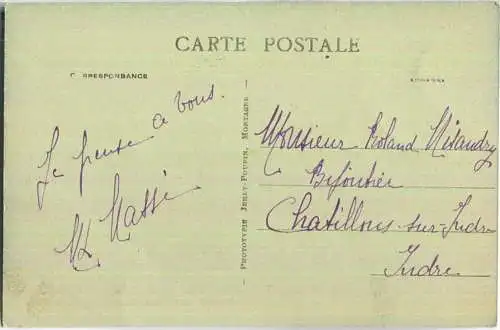 CARTE POSTALE
C RRESPONDANCE
Je pense a vous.
M Massé
PHOTOTYPIE JEHLY-POUPIN, MORTAGNE
Monsieur Roland
Bijoutier
Chatillons-sur-Indre
Indre